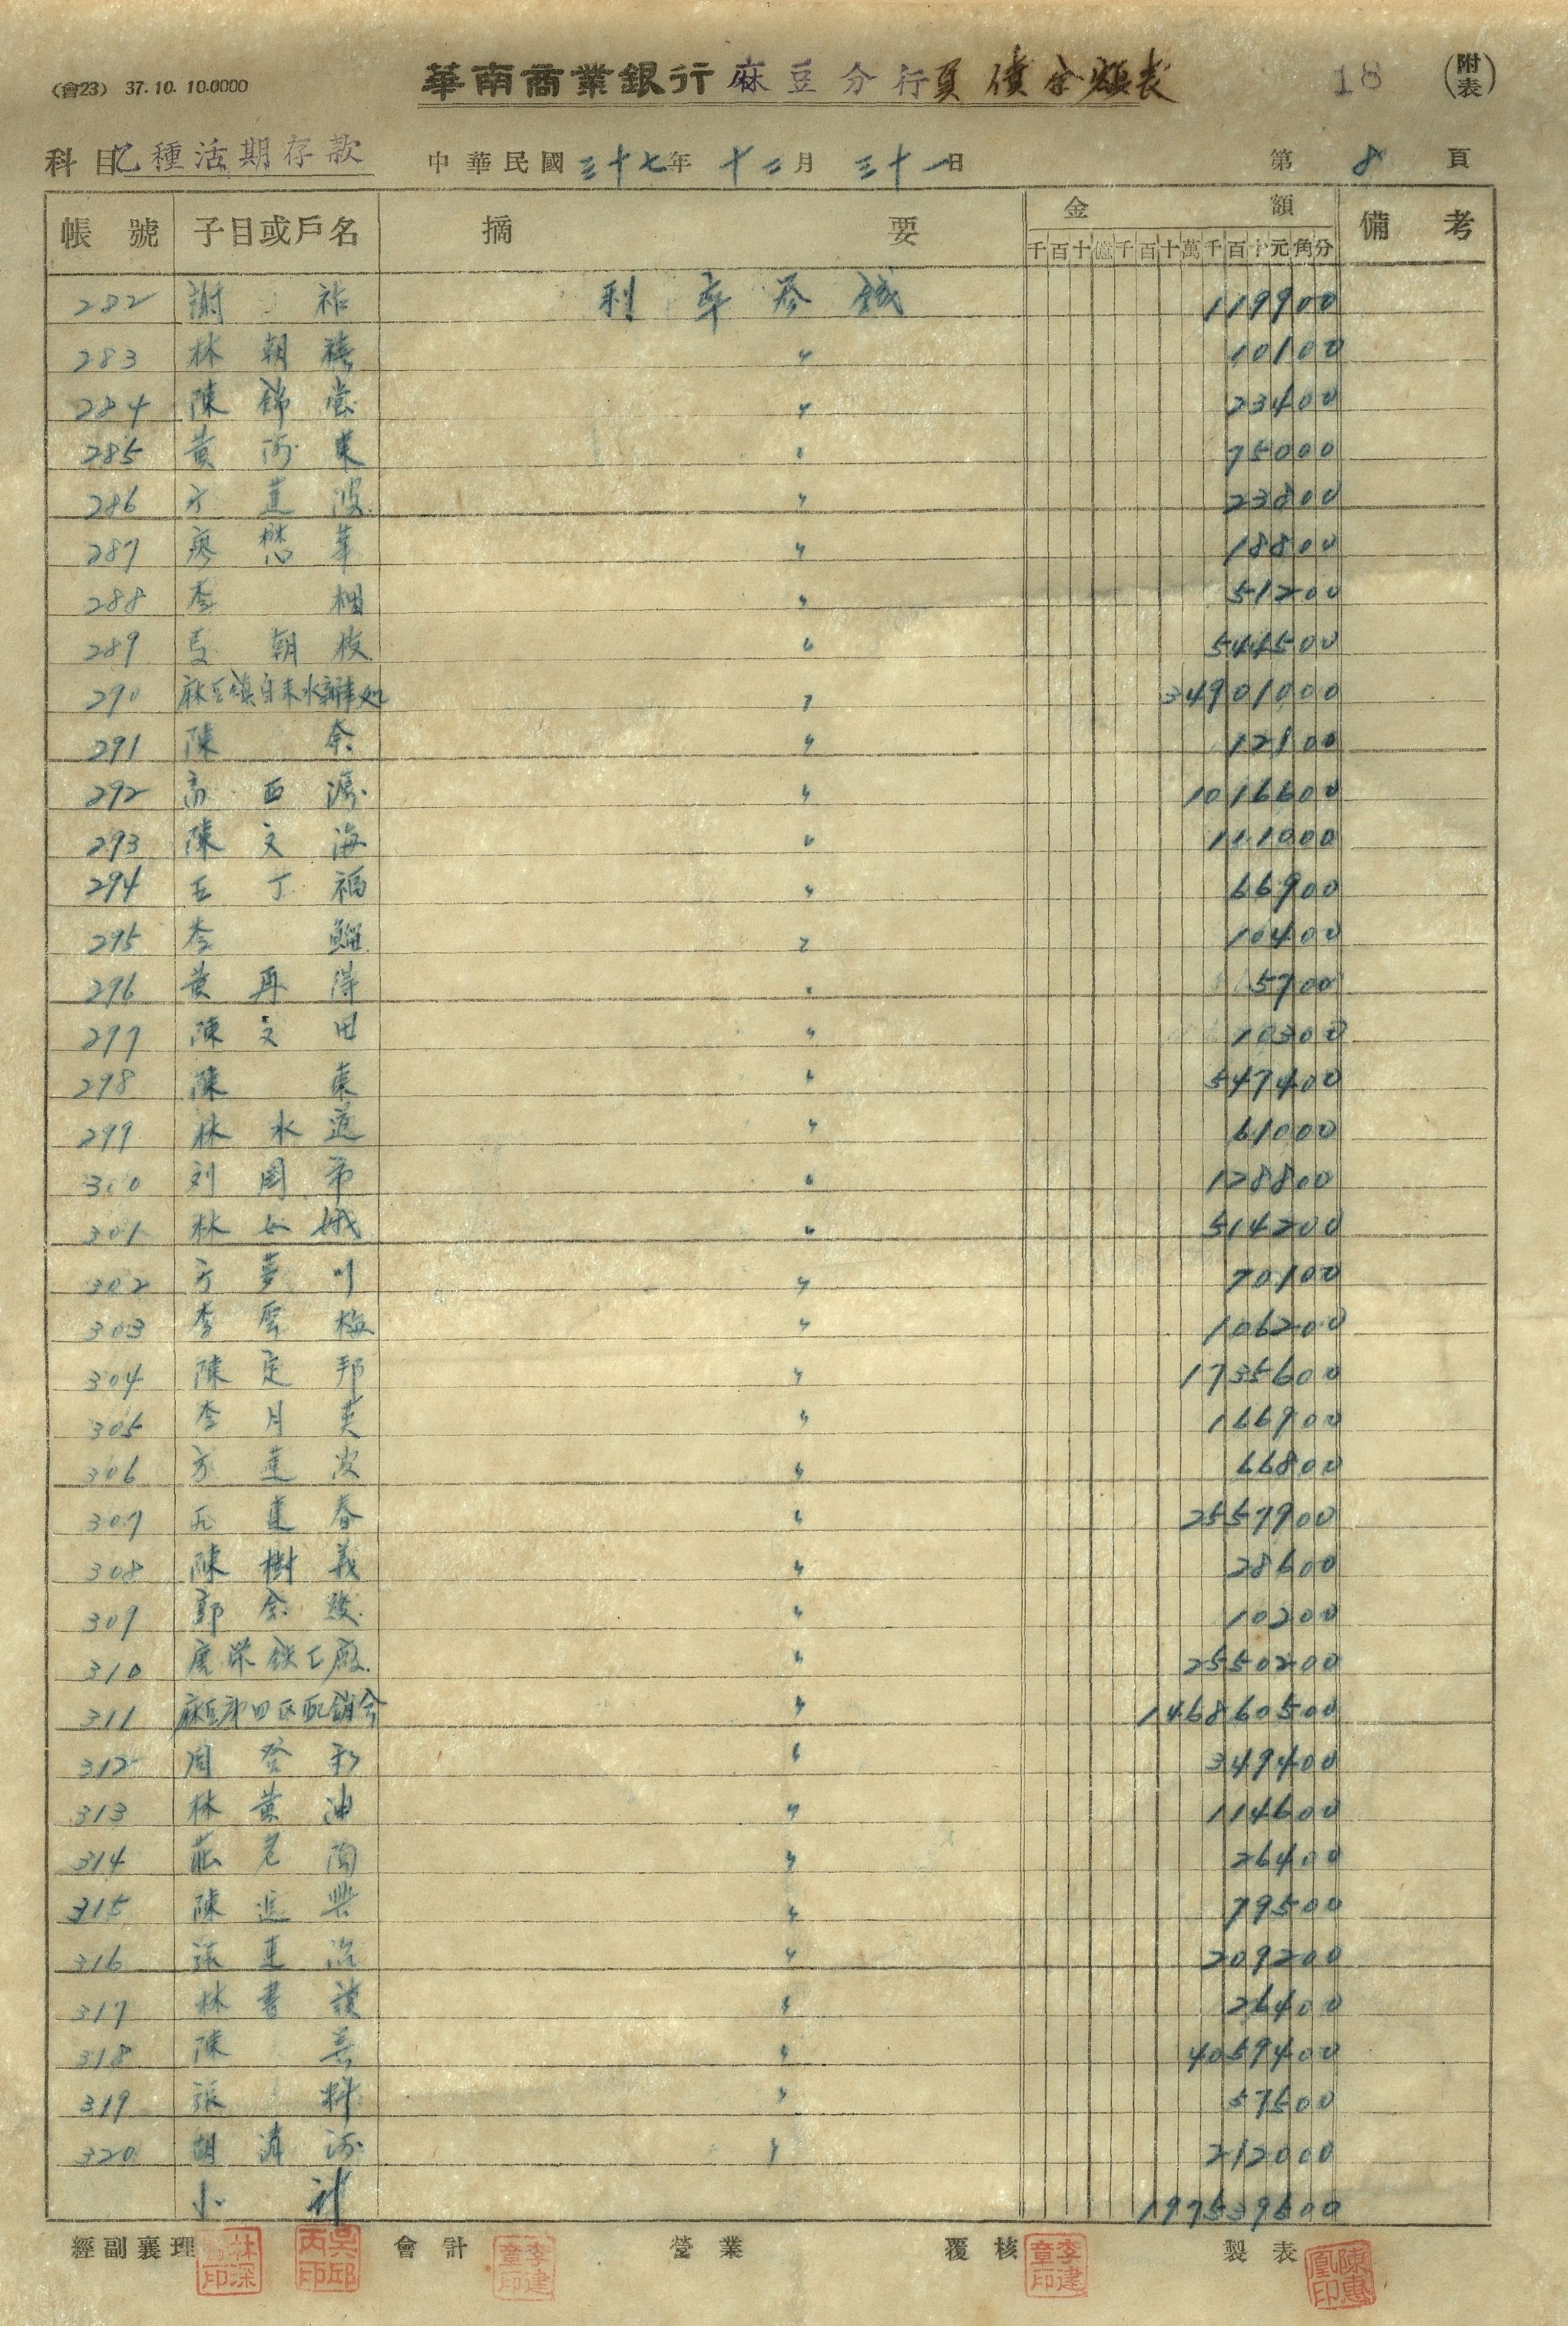 (會23) 37.10.10.0000 華南商業銀行麻豆分行負債余額表 18 (附表)
科目 乙種活期存款 中華民國三十七年十二月三十一日 第8頁
帳號 子目或戶名 摘要 金額 備考
千百十億千百十萬千百十元角分
282 謝 祐 利率參錢 119900
283 林朝 〃 10100
284 陳錦堂 〃 23400
285 黃河東 〃 75000
286 方蓮波 〃 23800
287 廖懋華 〃 18800
288 李 〃 51200
289 朝枝 〃 544500
290 麻豆鎮自來水辦事処 〃 34901000
291 陳 奈 〃 12800
292 高西源 〃 1016600
293 陳文海 〃 111000
294 王丁福 〃 66900
295 李 〃 10400
296 黃再得 〃 5900
297 陳文田 〃 10300
298 陳 東 〃 547400
299 林水 〃 61000
300 刘周 〃 128800
301 林 娥 〃 514200
302 方夢 〃 70100
303 李雲梅 〃 106200
304 陳定邦 〃 1735600
305 李月英 〃 166900
306 方蓮 〃 66800
307 春 〃 2557900
308 陳樹義 〃 28600
309 郭 〃 10200
310 唐榮鉄工廠 〃 2550200
311 麻豆第四区配銷会 〃 146860500
312 周登 〃 349400
313 林黃 〃 114600
314 莊老陶 〃 26400
315 陳進興 〃 79500
316 張 〃 209200
317 林書 〃 26400
318 陳 〃 4059400
319 張 科 〃 57500
320 胡清河 〃 212000
小計 197539600
經副襄理 會計 營業 覆核 製表
吳邱丙印 李建章印 李建章印 陳惠凰印